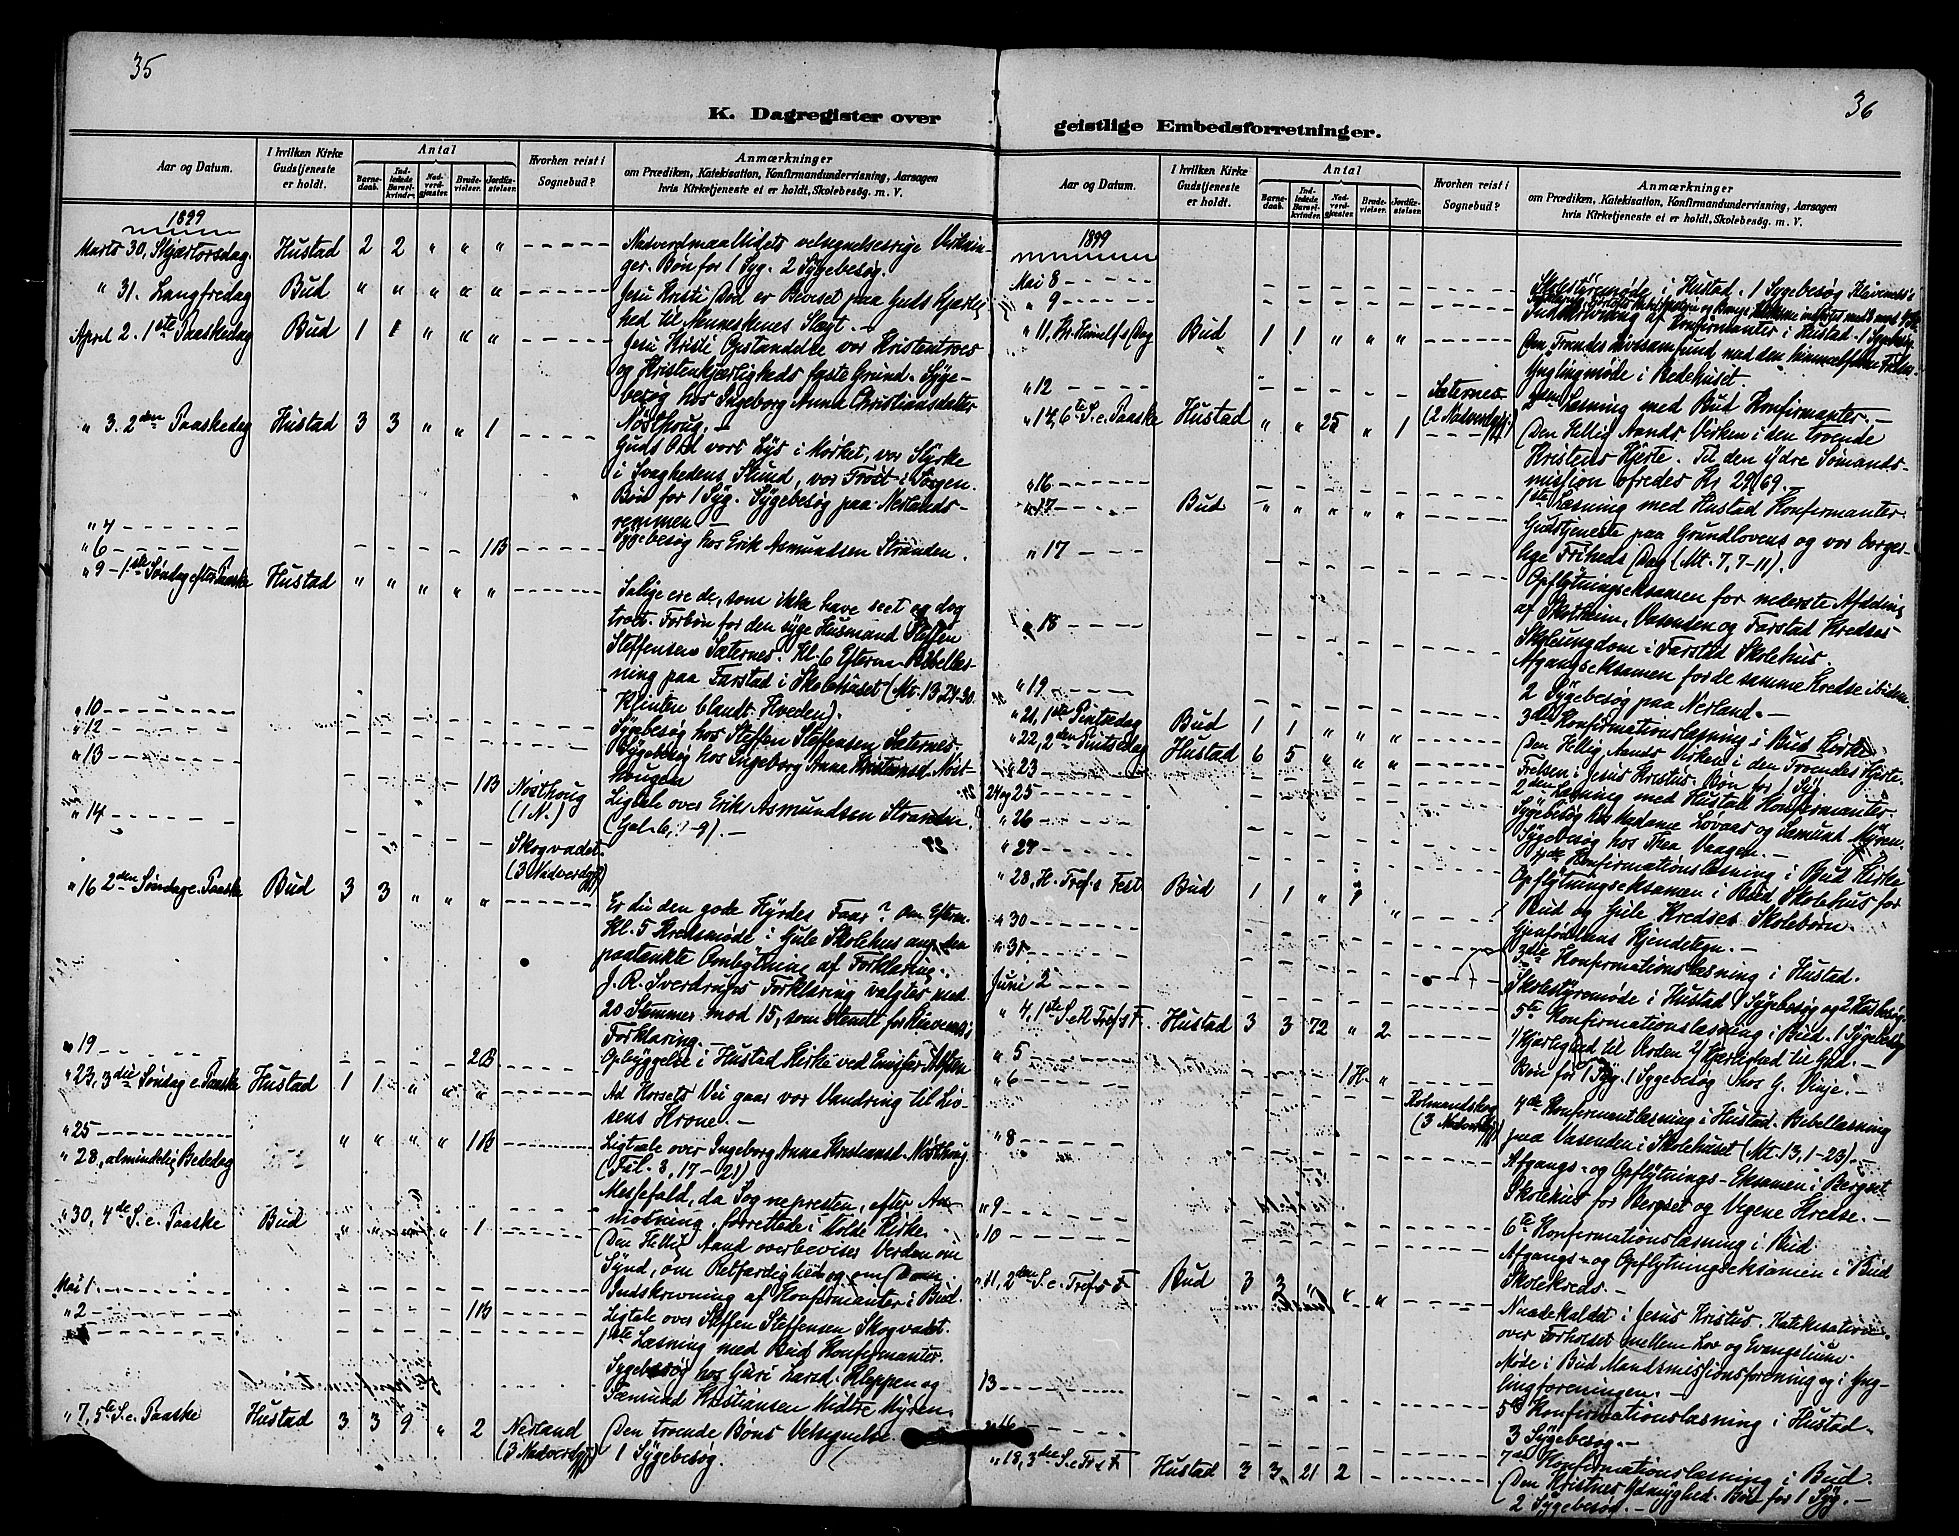 35
K. Dagregister over
Aar og Datum.
I hvilken Kirke Gudstjeneste er holdt.
Antal
Barnedaab.
Indledede Barselkvinder.
Nadverdgjester.
Brudevielser.
Jordfæstelser.
Hvorhen reist i Sognebud?
Anmærkninger
om Prædiken, Katekisation, Konfirmandundervisning, Aarsagen
hvis Kirketjeneste ei er holdt, Skolebesøg. m. V.
1899
Marts 30, Skjærtorsdag. Hustad 2 2 " " " Nadverdmaaltidets velsignelsesrige Virknin-
ger. Bøn for 1 Syg. 2 Sygebesøg.
" 31. Langfredag Bud " " " " " Jesu Kristi Død er Beviset paa Guds Kjærlig-
hed til Menneskenes Slægt. –
April 2. 1ste Paaskedag Bud 1 1 " " " Jesu Kristi Opstandelse vor Kristentroes
og Kristenkjærligheds faste Grund. Syge-
besøg hos Ingeborg Anna Christiansdatter
Nösthoug. –
" 3. 2den Paaskedag Hustad 3 3 " " 1 Guds Ord vort Lys i Mørket, vor Styrke
i Svaghedens Stund, vor Trøst i Sorgen.
Bøn for 1 Syg. Sygebesøg paa Nerlands-
remmen –
" 4
" 6 1B Sygebesøg hos Erik Asmundsen Stranden.
" 9 – 1ste Søndag efter Paaske Hustad " " " " " Salige ere de, som ikke have seet og dog
troet. Forbøn for den syge Husmand Steffen
Steffensen Sæternes. Kl. 6 Efterm. Bibellæs-
ning paa Farstad i Skolehuset (Mt. 13.24-30.
Klinten blandt Hveden).
" 10
" 12 Sygebesøg hos Steffen Steffensen Sæternes.
" 13 1B Nösthoug (1 N.) Sygebesøg hos Ingeborg Anna Kristiansd. Nöst-
hougen
" 14 Skogvadet (3 Nadverdgj.) Ligtale over Erik Asmundsen Stranden.
(Gal. 6, 7-9). –
" 16 2den Søndag e. Paaske Bud 3 3 " " " Er du den gode Hyrdes Faar? Om Efterm.
Kl. 5 Kredsmøde i Gule Skolehus ang. den
paatænkte Ombytning af Forklaring.
J. R. Sverdrups Forklaring valgtes med
20 Stemmer mod 15, som stemte for Klaveness's
Forklaring.
" 19 2B Opbyggelse i Hustad Kirke ved Emissær
" 23, 3die Søndag e. Paaske Hustad 1 1 " " " Ad Korsets Vei gaar vor Vandring til Liv-
sens Krone. –
" 25 " " " " 1B Ligtale over Ingeborg Anna Kristiansd. Nösthoug
(Fil. 3, 17-21)
" 28, almindelig Bededag Messefald, da Sognepresten, efter An-
modning, forrettede i Molde Kirke.
" 30, 4de S. e. Paaske Bud " " " " 1 Den Hellig Aand overbeviser Verden om
Synd, om Retfærdighed og om Dom.
Mai 1. Indskrivning af Konfirmanter i Bud.
" 2 1B Ligtale over Steffen Steffensen Skogvadet.
1ste Læsning med Bud Konfirmanter.
Sygebesøg hos Guri Larsd. Kleppen og
Sæmund Kristiansen Midtre Myren.
" 7, 5te S. e. Paaske Hustad 3 3 9 " 2 Nerland (3 Nadverdgj.) Den troende Bøns Velsignelse
1 Sygebesøg.
36
geistlige Embedsforretninger.
Aar og Datum.
I hvilken Kirke Gudstjeneste er holdt.
Antal
Barnedaab.
Indledede Barselkvinder.
Nadverdgjester.
Brudevielser.
Jordfæstelser.
Hvorhen reist i Sognebud?
Anmærkninger
om Prædiken, Katekisation, Konfirmandundervisning, Aarsagen
hvis Kirketjeneste ei er holdt, Skolebesøg. m. V.
1899
Mai 8 Skolestyremøde i Hustad. 1 Sygebesøg
" 9 Indskrivning af Konfirmanter i Hustad. 1 Sygebesøg
" 11, Kr. Himmelf. Dag Bud 1 1 " " " Den Troendes Livssamfund med den himmelfarne Frelser.
Ynglingmøde i Bedehuset.
" 12 Sæternes (2 Nadverdgj.) 2den Læsning med Bud Konfirmanter. –
" 14, 6te S. e. Paaske Hustad " " 25 " 1 Den Hellig Aands Virken i den troende
Kristens Hjerte. Til den Ydre Sömands-
mission ofredes Kr. 29,69.
" 16 1ste Læsning med Hustad Konfirmanter.
" 17 Bud " " " " " Gudstjeneste paa Grundlovens og vor borger-
lige Friheds Dag (Mt. 7, 7-11).
" 17 Opflytningseksamen for nederste Afdeling
af Skotheim, Vasenden og Farstad Kredses
Skoleungdom i Farstad Skolehus.
" 18 Afgangseksamen for de samme Kredse ibidem.
2 Sygebesøg paa Nerland. –
" 19 3die Konfirmationslæsning i Bud Kirke.
" 21, 1ste Pintsedag Bud 1 1 " " " Den Hellig Aands Virken i den Troendes Hjerte.
" 22, 2den Pintsedag Hustad 6 5 " " " Frelsen i Jesus Kristus. Bøn for 1 Syg.
" 23 2den Læsning med Hustad Konfirmanter.
24 og 25 Sygebesøg hos Madame Lövaas og Sæmund Myren.
" 26 Sygebesøg hos Thea Vaagen. –
" 27 4de Konfirmationslæsning i Bud Kirke
" 28, H. Tref.s Fest Bud 1 1 " " Opflytningseksamen i Bud Skolehus for
Bud og Gule Kredses Skolebørn.
" 30 Gjenfødelsens Kjendetegn. –
" 31 3die Konfirmationslæsning i Hustad.
Juni 2 Skolestyremøde i Hustad. 1 Sygebesøg og 2 Husbesøg
" 4, 1ste S. e. Tref.s F. Hustad 3 3 72 " 2 5te Konfirmationslæsning i Bud. 1 Sygebesøg
1) Kjærlighed til Verden 2) Kjærlighed til Gud. –
" 5 Bøn for 1 Syg. 1 Sygebesøg hos G. Vinje. –
" 6 1H " Kolmandskog (3 Nadverdgj.) 4de Konfirmantlæsning i Hustad. Bibellæsning
paa Vasenden i Skolehuset (Mt. 13, 1-23). –
" 8 Afgangs- og Opflytnings-Eksamen i Bergset
Skolehus for Bergset og Vegene Kredse. –
" 9 6te Konfirmationslæsning i Bud
" 10 Afgangs- og Opflytningseksamen i Bud
Skolekreds. –
" 11, 2den S. e. Tref.s F Bud 3 3 " " " Naadekaldet i Jesus Kristus. Katekisation
over Forholdet mellem Lov og Evangelium.
Møde i Bud Mandsmissionsforening og i Yng-
lingforeningen. –
13 5te Konfirmationslæsning i Hustad.
3 Sygebesøg. –
" 16 7de Konfirmationslæsning i Bud.
" 18, 3die S. e Tr.s F Hustad 3 3 21 2 Den Kristnes Ydmyghed. Bøn for 1 Syg. –
2 Sygebesøg. –